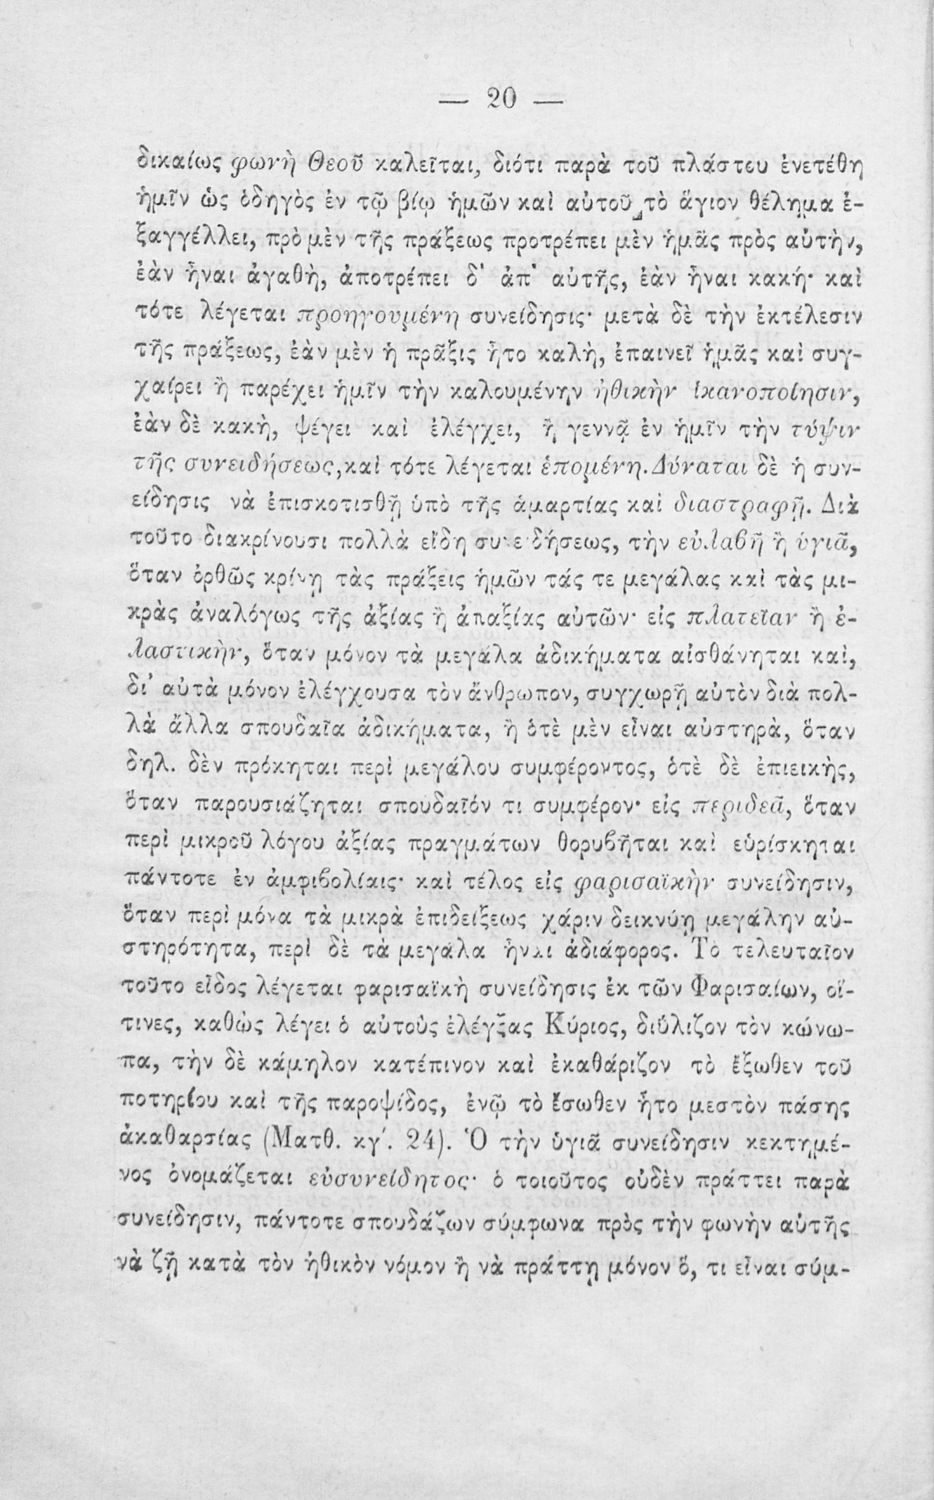 — 20 —
δικαίως φωνὴ Θεοῦ καλεῖται, διότι παρὰ τοῦ πλάστου ἐνετέθη
ἡμῖν ὡς ὁδηγὸς ἐν τῷ βίῳ ἡμῶν καὶ αὐτοῦ τὸ ἅγιον θέλημα ἐ-
ξαγγέλλει, πρὸ μὲν τῆς πράξεως προτρέπει μὲν ἡμᾶς πρὸς αὐτὴν,
ἐὰν ἦναι ἀγαθὴ, ἀποτρέπει δ' ἀπ' αὐτῆς, ἐὰν ἦναι κακή· καὶ
τότε λέγεται προηγουμένη συνείδησις· μετὰ δὲ τὴν ἐκτέλεσιν
τῆς πράξεως, ἐὰν μὲν ἡ πρᾶξις ἦτο καλὴ, ἐπαινεῖ ἡμᾶς καὶ συγ-
χαίρει ἢ παρέχει ἡμῖν τὴν καλουμένην ἠθικὴν ἱκανοποίησιν,
ἐὰν δὲ κακὴ, ψέγει καὶ ἐλέγχει, ἢ γεννᾷ ἐν ἡμῖν τὴν τύψιν
τῆς συνειδήσεως, καὶ τότε λέγεται ἑπομένη. Δύναται δὲ ἡ συν-
είδησις νὰ ἐπισκοτισθῇ ὑπὸ τῆς ἁμαρτίας καὶ διαστραφῇ. Διὰ
τοῦτο διακρίνουσι πολλὰ εἴδη συνειδήσεως, τὴν εὐλαβῆ ἢ ὑγιᾶ,
ὅταν ὀρθῶς κρίνῃ τὰς πράξεις ἡμῶν τάς τε μεγάλας καὶ τὰς μι-
κρὰς ἀναλόγως τῆς ἀξίας ἢ ἀπαξίας αὐτῶν· εἰς πλατεῖαν ἢ ἐ-
λαστικὴν, ὅταν μόνον τὰ μεγάλα ἀδικήματα αἰσθάνηται καὶ,
δι' αὐτὰ μόνον ἐλέγχουσα τὸν ἄνθρωπον, συγχωρῇ αὐτὸν διὰ πολ-
λὰ ἄλλα σπουδαῖα ἀδικήματα, ἢ ὁτὲ μὲν εἶναι αὐστηρὰ, ὅταν
δηλ. δὲν πρόκηται περὶ μεγάλου συμφέροντος, ὁτὲ δὲ ἐπιεικὴς,
ὅταν παρουσιάζηται σπουδαῖόν τι συμφέρον· εἰς περιδεᾶ, ὅταν
περὶ μικροῦ λόγου ἀξίας πραγμάτων θορυβῆται καὶ εὑρίσκηται
πάντοτε ἐν ἀμφιβολίαις· καὶ τέλος εἰς φαρισαϊκὴν συνείδησιν,
ὅταν περὶ μόνα τὰ μικρὰ ἐπιδείξεως χάριν δεικνύῃ μεγάλην αὐ-
στηρότητα, περὶ δὲ τὰ μεγάλα ἦναι ἀδιάφορος. Τὸ τελευταῖον
τοῦτο εἶδος λέγεται φαρισαϊκὴ συνείδησις ἐκ τῶν Φαρισαίων, οἵ-
τινες, καθὼς λέγει ὁ αὐτοὺς ἐλέγξας Κύριος, διΰλιζον τὸν κώνω-
πα, τὴν δὲ κάμηλον κατέπινον καὶ ἐκαθάριζον τὸ ἔξωθεν τοῦ
ποτηρίου καὶ τῆς παροψίδος, ἐνῷ τὸ ἔσωθεν ἦτο μεστὸν πάσης
ἀκαθαρσίας (Ματθ. κγ'. 24). Ὁ τὴν ὑγιᾶ συνείδησιν κεκτημέ-
νος ὀνομάζεται εὐσυνείδητος· ὁ τοιοῦτος οὐδὲν πράττει παρὰ
συνείδησιν, πάντοτε σπουδάζων σύμφωνα πρὸς τὴν φωνὴν αὐτῆς
νὰ ζῇ κατὰ τὸν ἠθικὸν νόμον ἢ νὰ πράττῃ μόνον ὅ, τι εἶναι σύμ-